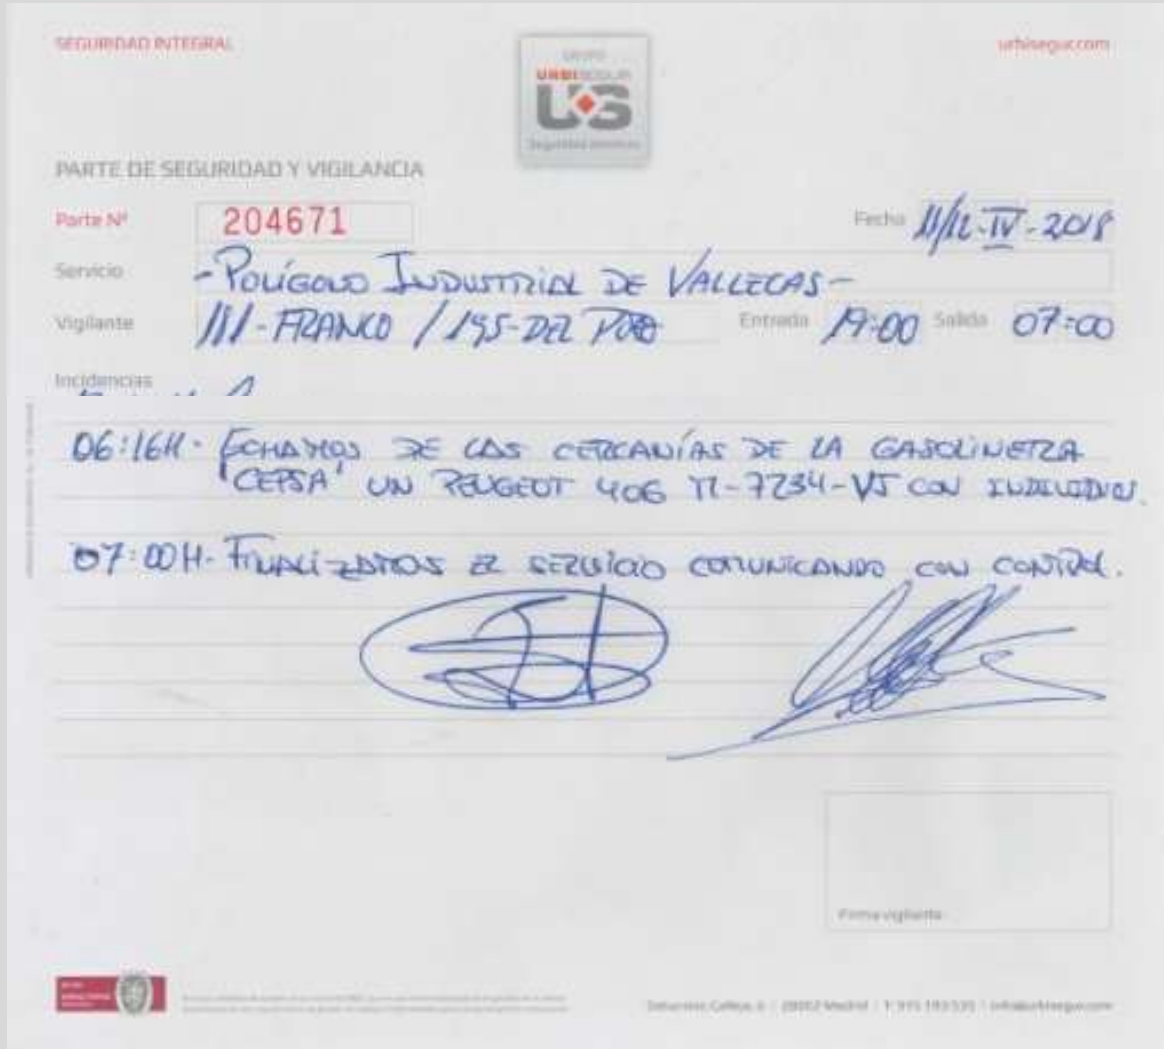 SEGURIDAD INTEGRAL
urbisegur.com
GRUPO
URBISEGUR
UGS
PARTE DE SEGURIDAD Y VIGILANCIA
Parte Nº 204671
Fecha 11/12-IV-2018
Servicio -POLÍGONO INDUSTRIAL DE VALLECAS-
Vigilante 111-FRANCO / 195-DEL POZO Entrada 19:00 Salida 07:00
Incidencias
06:16H- ECHAMOS DE LAS CERCANÍAS DE LA GASOLINERA
"CEPSA" UN PEUGEOT 406 M-7234-VJ CON INDIVIDUOS.
07:00H- FINALIZAMOS EL SERVICIO COMUNICANDO CON CONTROL.
Firma vigilante
28002 Madrid